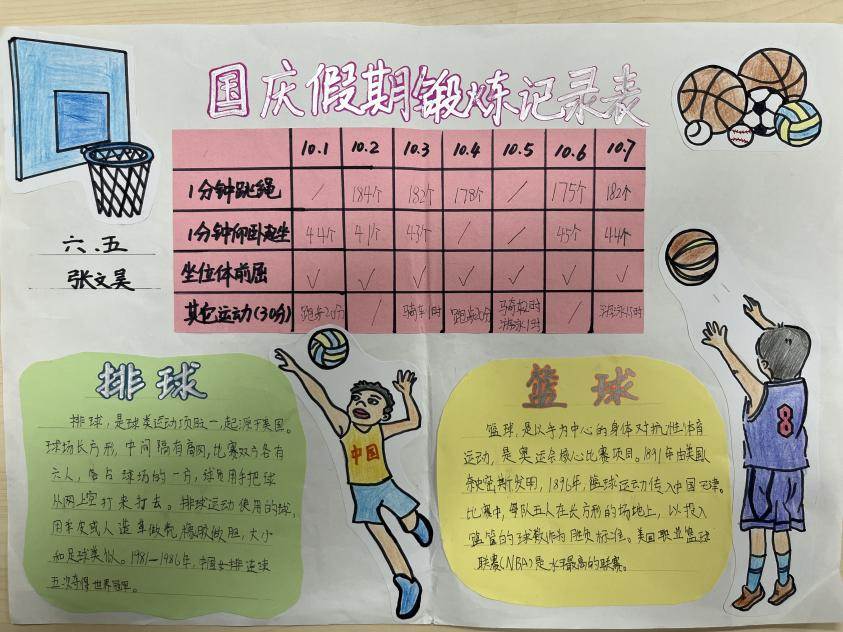 国庆假期锻炼记录表
10.1 10.2 10.3 10.4 10.5 10.6 10.7
1分钟跳绳 / 184个 182个 178个 / 175个 182个
1分钟仰卧起坐 44个 41个 43个 / / 45个 44个
坐位体前屈 ✓ ✓ ✓ ✓ ✓ ✓ ✓
其它运动(30分) 跑步20分 / 骑车1时 跑步20分 骑车 时 游泳1时 / 游泳1.5时
六.五
张文昊
中国
8
排球
排球,是球类运动项目之一,起源于美国。
球场长方形,中间隔有高网,比赛双方各有
六人,各占球场的一方,球员用手把球
从网上空打来打去。排球运动使用的球,
用羊皮或人造革做壳,橡胶做胆,大小
和足球类似。1981—1986年,中国女排连续
五次夺得世界冠军。
篮球
篮球,是以手为中心的身体对抗性体育
运动,是奥运会核心比赛项目。1891年由美国
奈史密斯发明,1896年,篮球运动传入中国天津。
比赛中,每队五人在长方形的场地上,以投入
篮筐的球数作为胜负标准。美国职业篮球
联赛(NBA)是水平最高的联赛。